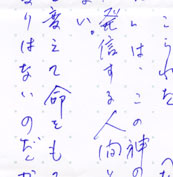 こられた
は、この神の
発信する人間と
い。
変えて命をも
りはないのだ